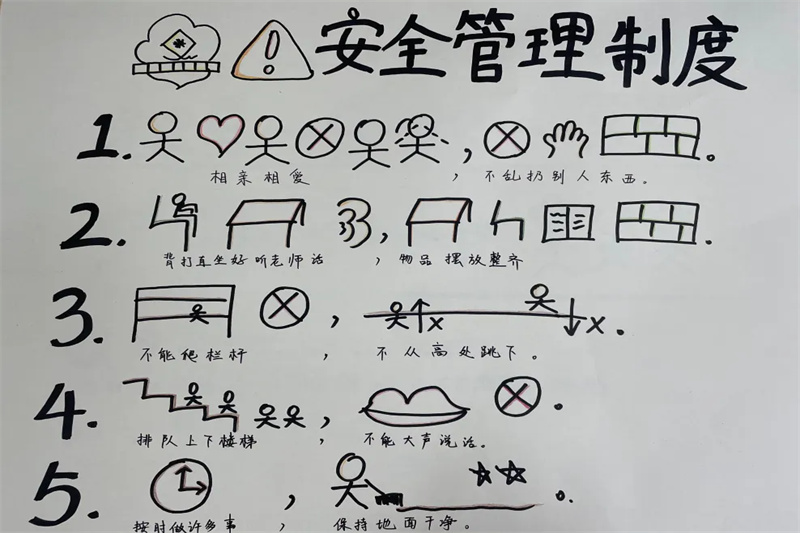 安全管理制度
1.
相亲相爱，不乱扔别人东西。
2.
背打直坐好听老师话，物品摆放整齐
3.
不能爬栏杆，不从高处跳下。
4.
排队上下楼梯，不能大声说话。
5.
按时做许多事，保持地面干净。